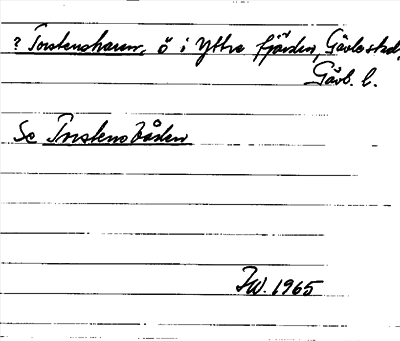 ? Torstensharen, ö i Yttre fjärden, Gävle stad,
Gävb. l.
Se Torstensbåden
IW. 1965